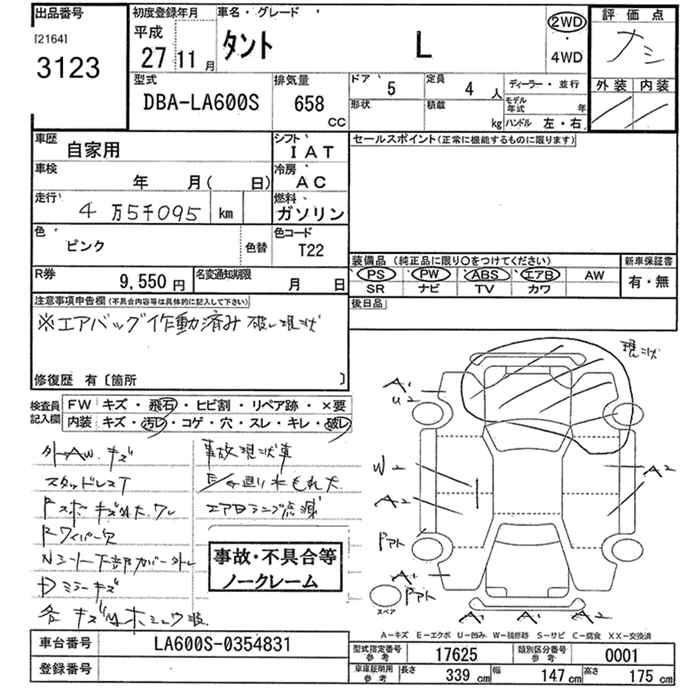 出品番号
[2164]
3123
初度登録年月
平成
27 11 月
車名・グレード
タント L
2WD
・
4WD
評価点
ナシ
外装 内装
型式
DBA-LA600S
排気量
658
CC
ドア 5
定員 4 人
ディーラー・並行
形状
積載 kg
モデル年式 年
ハンドル 左・右
車歴 自家用
シフト IAT
セールスポイント(正常に機能するものに限ります)
車検 年 月( 日)
冷房 AC
走行 4 万5千095 km
燃料 ガソリン
色 ピンク 色替
色コード T22
装備品 (純正品に限り○をつけてください)
新車保証書
PS PW ABS エアB AW
有・無
SR ナビ TV カワ
R券 9,550 円
名変通知期限 月 日
後日品
注意事項申告欄(不具合内容等は具体的に記入して下さい)
※エアバッグ作動済み 破レ現状
修復歴 有〔箇所 〕
検査員記入欄
FW キズ・飛石・ヒビ割・リペア跡・×要
内装 キズ・汚レ・コゲ・穴・スレ・キレ・破レ
外AW キズ
スタッドレスT
Rワイパー欠
Dミラーキズ
事故現状車
水もれ大
エアBランプ点滅
事故・不具合等
ノークレーム
現状
A1
U2
W2
A2
A2
A1
A1 A1 A2
スペア
A-キズ E-エクボ U-凹み W-補修跡 S-サビ C-腐食 XX-交換済
車台番号 LA600S-0354831
登録番号
型式指定番号 参考 17625
類別区分番号 参考 0001
車庫証明用 参考 長さ 339 cm 幅 147 cm 高さ 175 cm